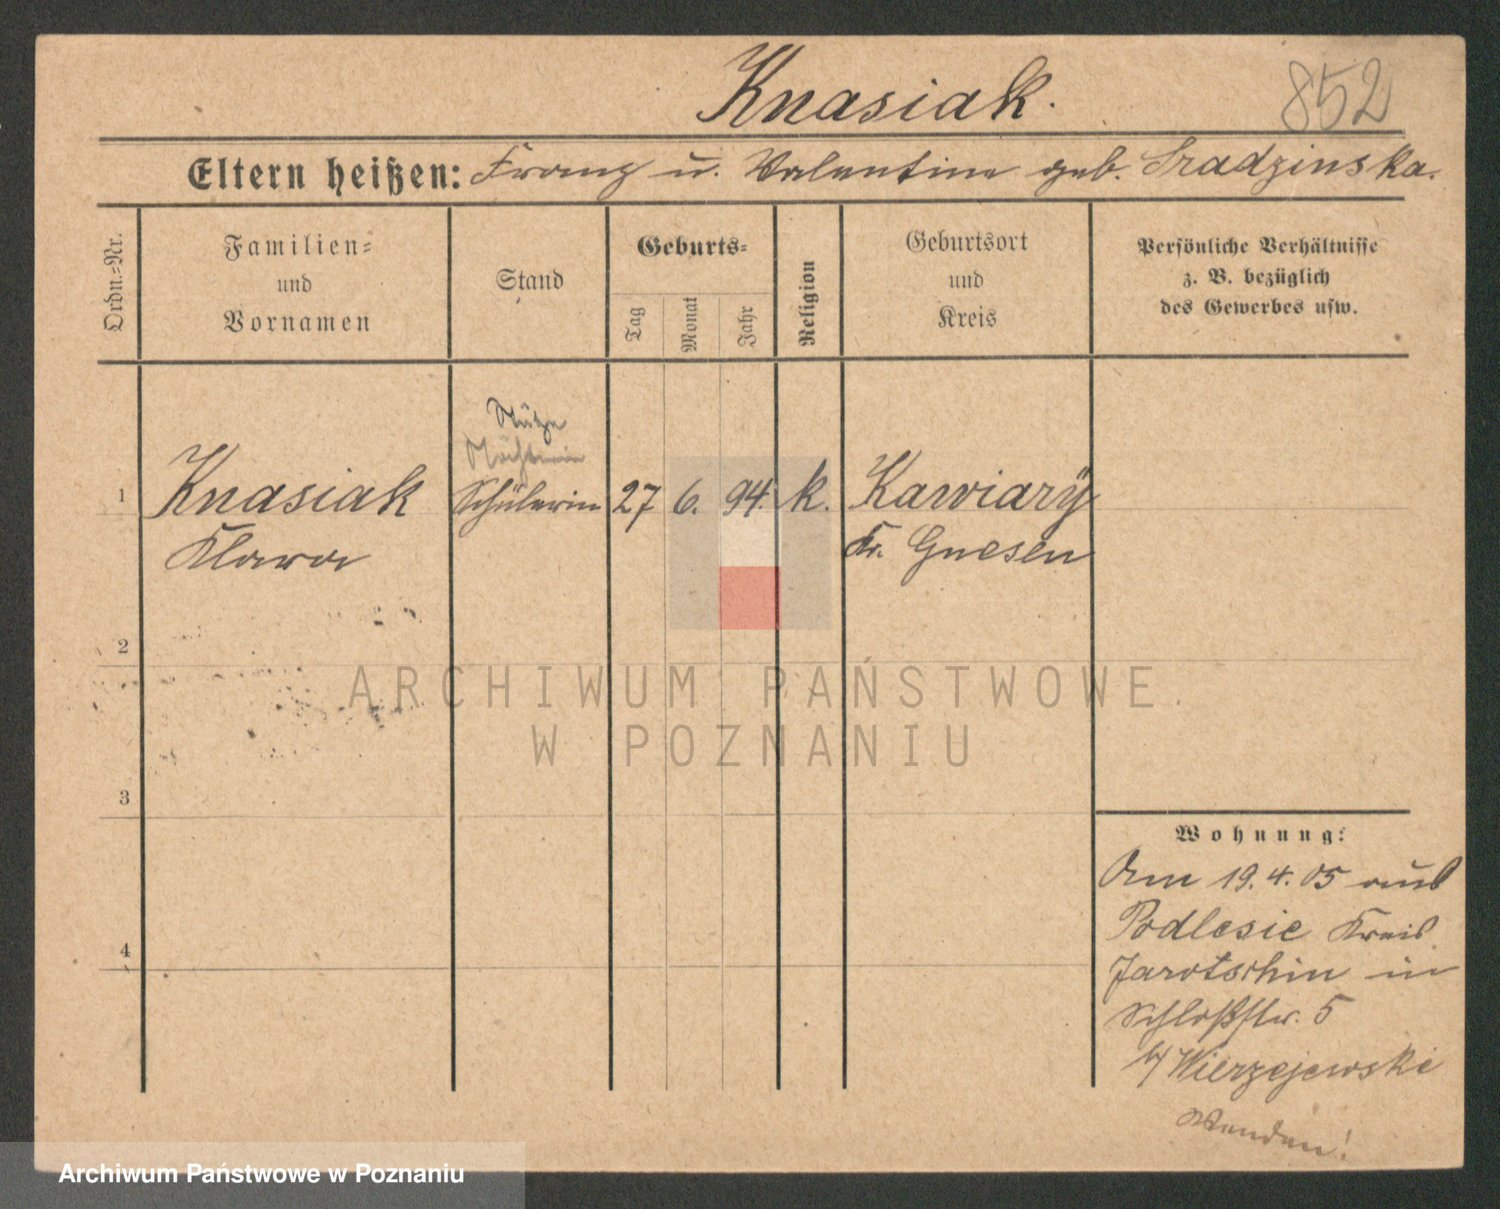 Knasiak.
852
Eltern heißen: Franz u. Valentine geb. Sradzinska.
Ordn.=Nr.
Familien=
und
Vornamen
Stand
Geburts=
Tag
Monat
Jahr
Religion
Geburtsort
und
Kreis
Persönliche Verhältnisse
z. B. bezüglich
des Gewerbes usw.
Stütze
1 Knasiak Schülerin 27 6. 94. k. Kawiary
Klara Kr. Gnesen
2
3
4
Wohnung:
Am 19.4.05 aus
Podlesie Kreis
Jarotschin in
Schloßstr. 5
b/ Wierzejewski
Wenden!
ARCHIWUM PAŃSTWOWE
W POZNANIU
Archiwum Państwowe w Poznaniu